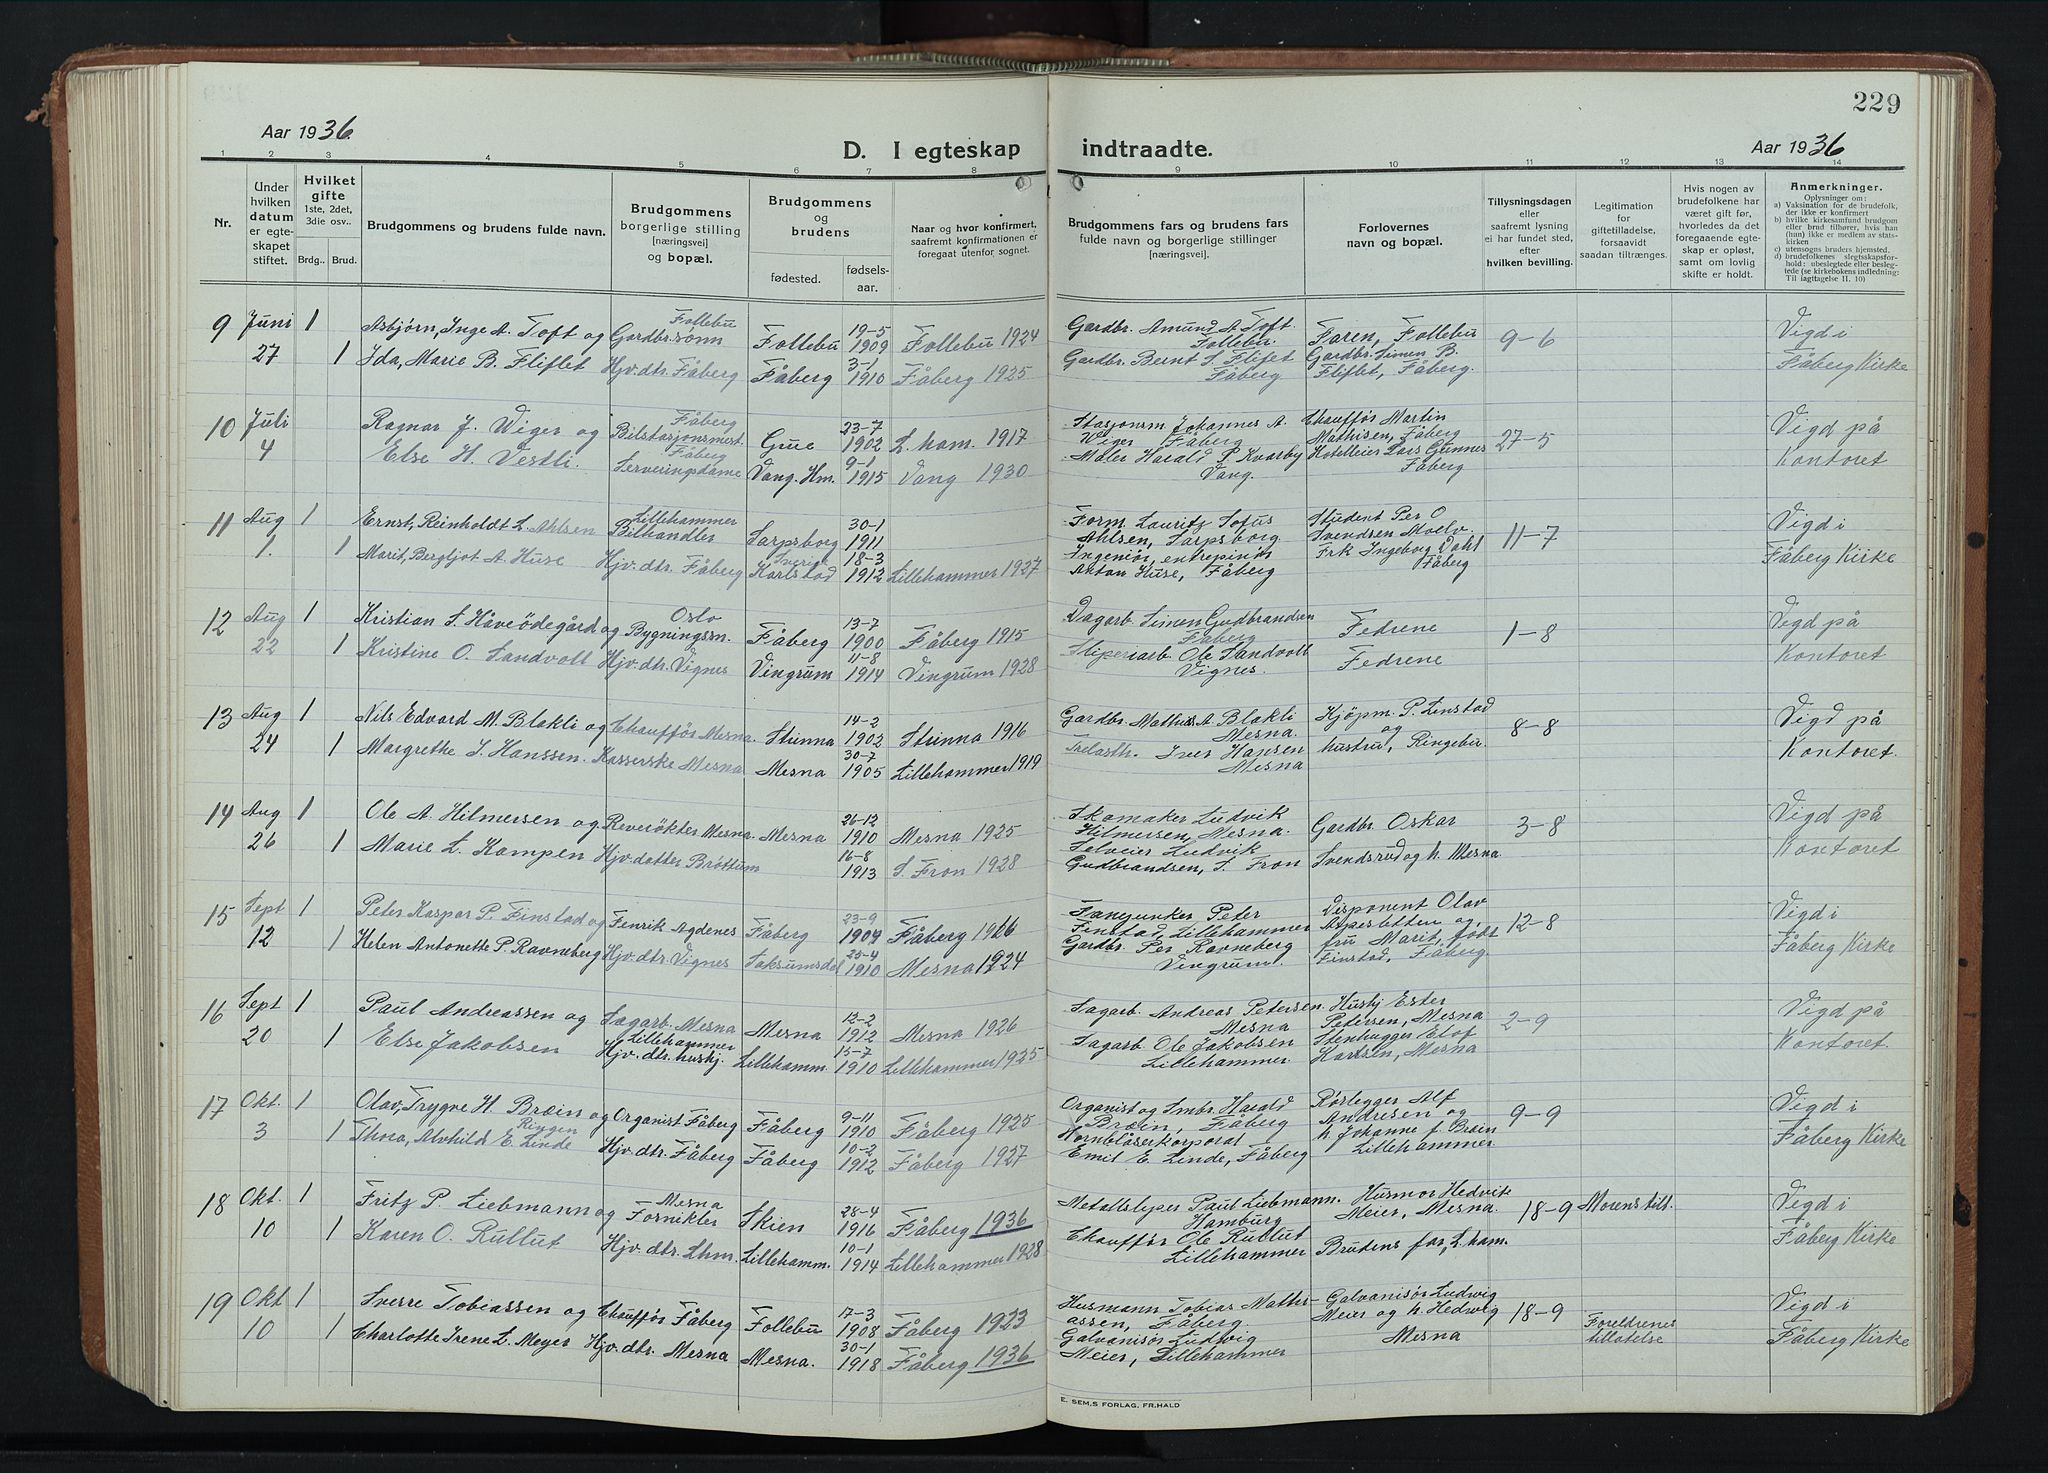 229
Aar 1936.
D. I egteskap indtraadte.
Aar 1936
1 2 3 4 5 6 7 8 9 10 11 12 13 14
Nr.
Under hvilken datum er egteskapet stiftet.
Hvilket gifte 1ste, 2det, 3die osv..
Brdg.. Brud.
Brudgommens og brudens fulde navn.
Brudgommens borgerlige stilling [næringsvei] og bopæl.
Brudgommens og brudens
fødested. fødselsaar.
Naar og hvor konfirmert, saafremt konfirmationen er foregaat utenfor sognet.
Brudgommens fars og brudens fars fulde navn og borgerlige stillinger [næringsvei].
Forlovernes navn og bopæl.
Tillysningsdagen eller saafremt lysning ei har fundet sted, efter hvilken bevilling.
Legitimation for giftetilladelse, forsaavidt saadan tiltrænges.
Hvis nogen av brudefolkene har været gift før, hvorledes da det foregaaende egteskap er opløst, samt om lovlig skifte er holdt.
Anmerkninger.
Oplysninger om:
a) Vaksination for de brudefolk, der ikke er konfirmert
b) hvilke kirkesamfund brudgom eller brud tilhører, hvis han (hun) ikke er medlem av statskirken
c) utensogns bruders hjemsted.
d) brudefolkenes slegtsskapsforhold: ubeslegtede eller beslegtede (se kirkebokens indledning: Til iagttagelse II. 10)
9 Juni 1 Asbjørn, Inge A. Toft og Follebu Gardbr.sønn Follebu 19-5 1909 Follebu 1924 Gardbr. Amund A Toft. Follebu. Faren, Follebu 9-6 Vigd i
27 1 Ida, Marie B. Fliflet Hjv. dtr. Fåberg Fåberg 3-1 1910 Fåberg 1925 Gardbr. Bernt S Flifet Fåberg Gardbr. Simen B. Fliflet, Fåberg. Fåberg Kirke
10 Juli Ragnar J. Wiger og Fåberg Bilstasjonsmest. Gue 23-7 1902 L. ham. 1917 Stasjonsm Johannes A. Wiger Fåberg Chauffør Martin Mathisen, Fåberg 27-5 Vigd på
4 Else H. Vestli. Fåberg Serveringsdame Vang. Hm. 9-1 1915 Vang 1930 Maler Harald P Kvarby Vang. Hotelleier Lars Gunnes Fåberg Kontoret
11 Aug 1 Ernst, Reinholdt L. Ahlsen Lillehammer Bilhandler Sarpsborg 30-1 1911 Form. Lauritz Sofus Ahlsen, Sarpsborg Student Per O Svendsen Moelv. 11-7 Vigd i
1. 1 Marit, Bergljot A. Huse Hjv. dtr. Fåberg Sverige Karlstad 18-3 1912 Lillehammer 1927 Ingeniør, entreprenør Anton Huse, Fåberg Frk Ingeborg Dahl Fåberg Fåberg Kirke
12 Aug 1 Kristian S. Håveödegård og Oslo Bygningssn. Fåberg 13-7 1900 Fåberg 1915 Dagarb. Simen Gudbrandsen Fåberg Fedrene 1-8 Vigd på
22 1 Kristine O. Sandvolt Hjv. dtr. Vignes Vingrum 11-8 1914 Vingrum 1928 Sliperiarb. Ole Sandvolt Vignes. Fedrene Kontoret
13 Aug 1 Nils Edvard M. Blakli og Chauffør Mesna. Strinna 14-2 1902 Strinna 1916 Gardbr. Mathias A. Blakli Mesna. Kjöpm. P. Linstad og 8-8 Vigd på
24 1 Margrethe I. Hanssen. Kasserske Mesna Mesna 30-7 1905 Lillehammer 1919 Trelasth. Iver Hansen Mesna hustru, Ringebu. Kontoret.
14 Aug 1 Ole A. Hilmersen og Reverökter Mesna. Mesna 26-12 1910 Mesna 1925 Skomaker Ludvik Hilmersen, Mesna. Gardbr. Oskar 3-8 Vigd på
26 1 Marie L. Kampen Hjv. datter Bröttum 16-8 1913 S. Fron 1928 Selveier Ludvik Gudbrandsen, S. Fron Svendsrud og h. Mesna. Kontoret
15 Sept 1 Peter Kaspar P. Finstad og Fenrik Agdenes Fåberg 23-9 1909 Fåberg 1926 Fanejunker Peter Finstad, Lillehammer Disponent Olav Aspesletten og 12-8 Vigd i
12 1 Helen Antonette P. Ravneberg Hjv. dtr. Vignes Saksumsdal 25-4 1910 Mesna 1924 Gardbr. Per Ravneberg Vingrum. fru Marit, født Finstad, Fåberg. Fåberg Kirke
16 Sept 1 Paul Andreassen og Sagarb. Mesna Mesna 12-2 1912 Mesna 1926 Sagarb. Andreas Petersen. Mesna Hushj Ester Petersen, Mesna 2-9 Vigd på
20 1 Else Jakobsen Lillehammer Hjv. dtr. hushj. Lillehamm. 15-7 1910 Lillehammer 1925 Sagarb. Ole Jakobsen Lillehammer Stenhugger Elof Karlsen, Mesna Kontoret.
17 Okt. 1 Olav, Trygve H. Bræin og Organist Fåberg Fåberg 9-11 1910 Fåberg 1925 Organist og Smbr. Harald Bræin, Fåberg Rørlegger Alf Andresen og 9-9 Vigd i
3 1 Thora, Alvhild E. Ringen Linde Hjv. dtr. Fåberg Fåberg 10-2 1912 Fåberg 1927 Hornblåserkorporal Emil E. Linde, Fåberg h. Johanne f. Bræin Lillehammer Fåberg Kirke
18 Okt. 1 Fritz P. Liebmann og Mesna Fornikler Skien 28-4 1916 Fåberg 1936 Metallsliper Paul Liebmann. Hamburg Husmor Hedvik Meier, Mesna. 18-9 Morens till. Vigd i
10 1 Karen O. Rullut Hjv. dtr. Lhm. Lillehamm. 10-1 1914 Lillehammer 1928 Chauffør Ole Rullut Lillehammer Brudens far, L. ham. Fåberg Kirke
19 Okt 1 Sverre Tobiassen og Chauffør Fåberg Follebu 17-3 1908 Fåberg 1923 Husmann Tobias Mathiassen, Fåberg. Galvanisør Ludwig Meier og h. Hedwig 18-9 Foreldrenes tillatelse Vigd i
10 1 Charlotte Irene L. Meyer Hjv. dtr. Mesna Mesna. 30-1 1918 Fåberg 1936 Galvanisør Ludwig Meier, Lillehammer Mesna Fåberg Kirke
E. SEM,S FORLAG, FR.HALD